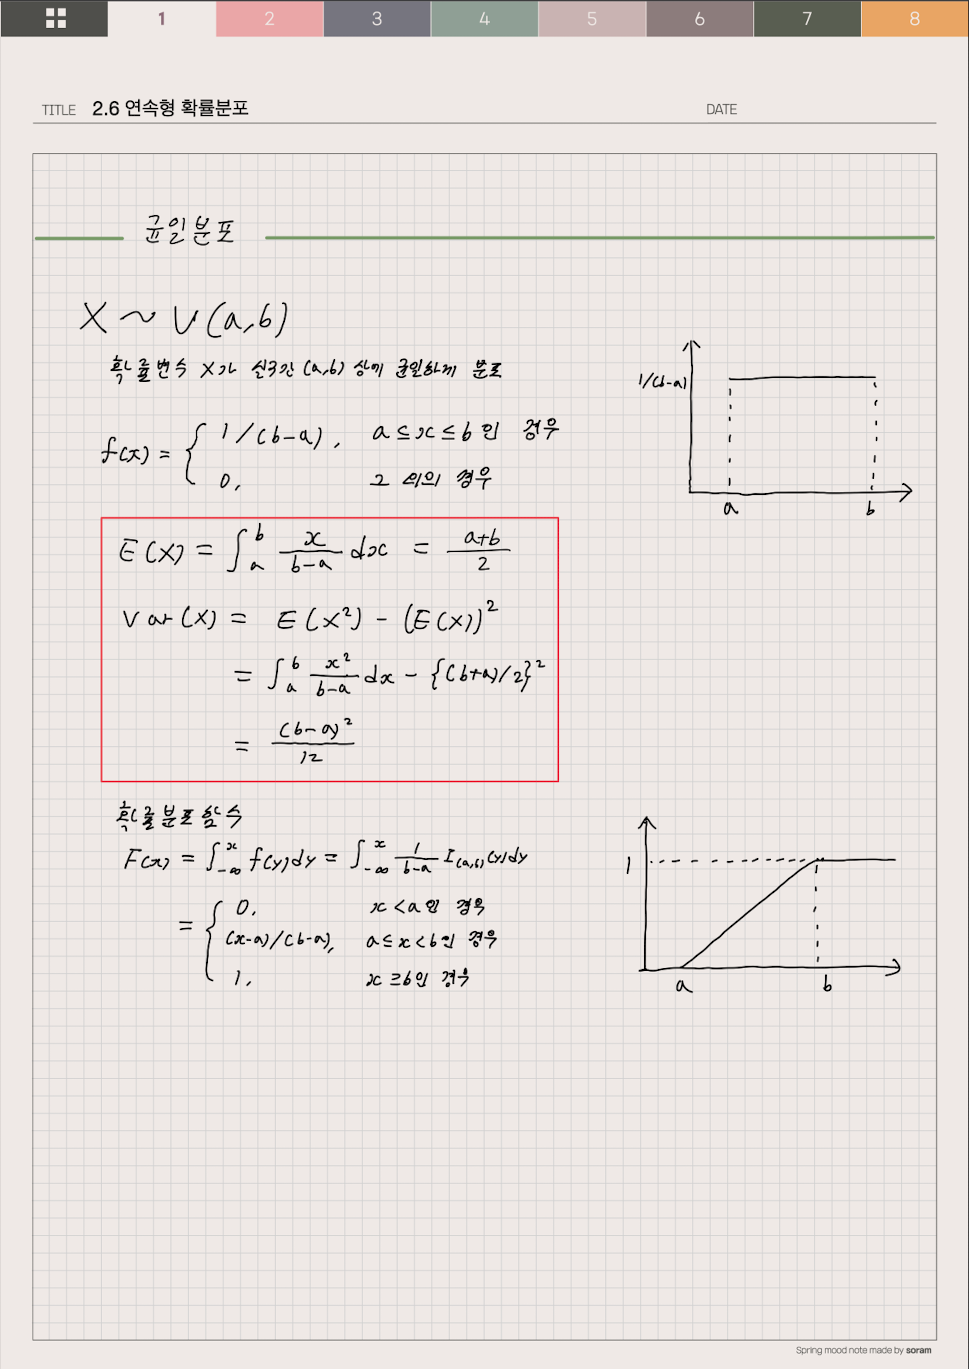 1 2 3 4 5 6 7 8
TITLE 2.6 연속형 확률분포 DATE
균일분포
X ~ U(a,b)
확률변수 X가 실구간 (a,b) 상에 균일하게 분포
f(x) = { 1/(b-a), a≤x≤b인 경우
0, 그 외의 경우
1/(b-a)
a b
E(X) = ∫_a^b x/(b-a) dx = (a+b)/2
Var(X) = E(X²) - (E(X))²
= ∫_a^b x²/(b-a) dx - {(b+a)/2}²
= (b-a)²/12
확률분포함수
F(x) = ∫_{-∞}^x f(y)dy = ∫_{-∞}^x 1/(b-a) I_{(a,b)}(y)dy
= { 0, x<a인 경우
(x-a)/(b-a), a≤x<b인 경우
1, x≥b인 경우
1
a b
Spring mood note made by soram